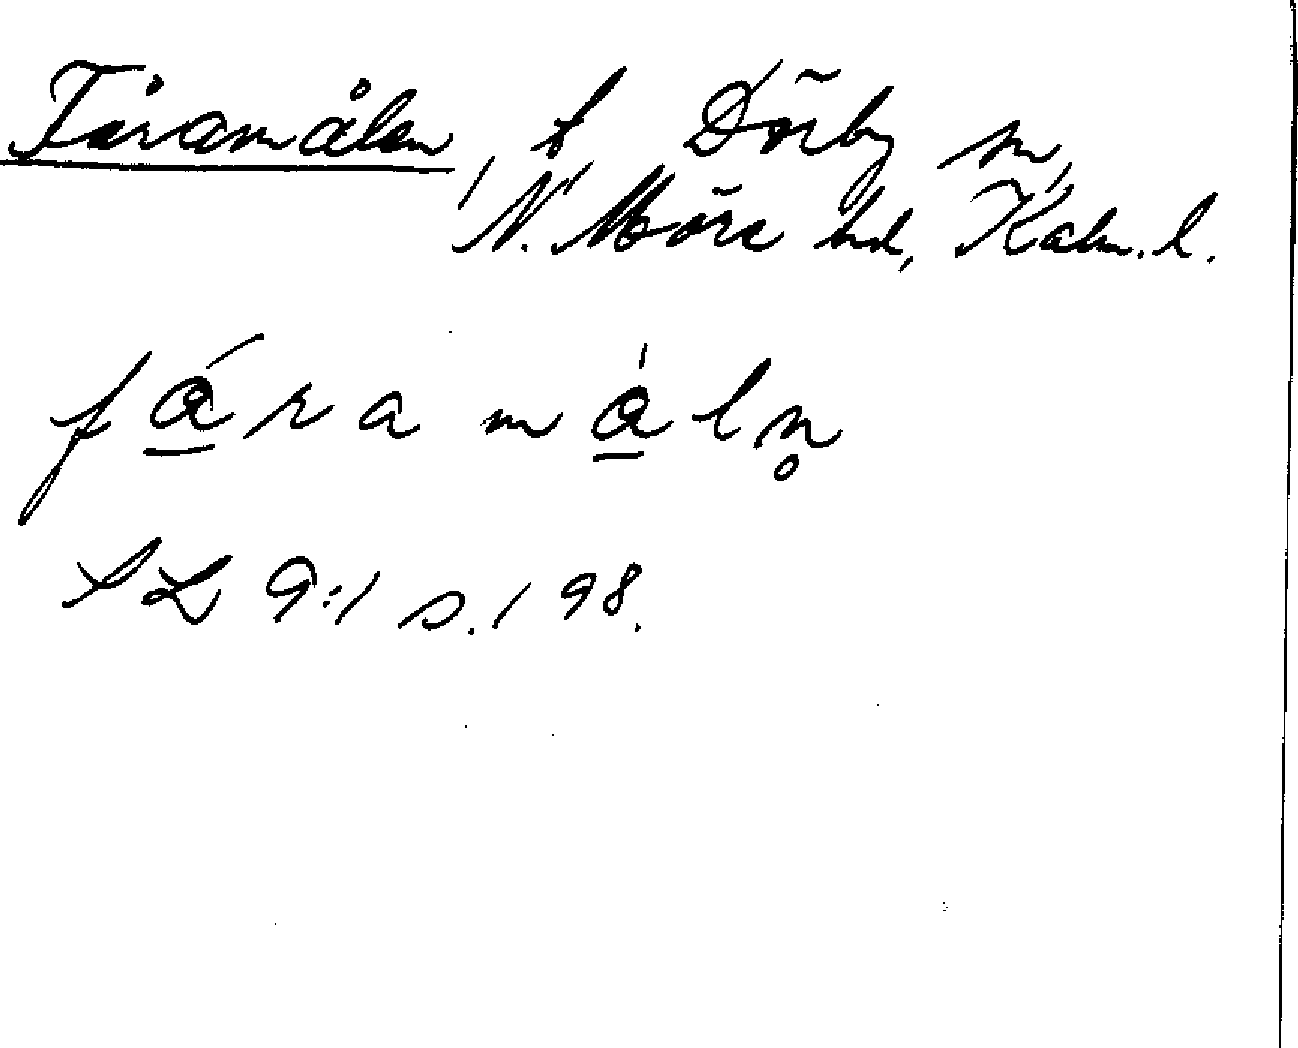 Fåramålen, t Dörby sn,
N. Möre hd, Kalm. l.
fá̱ramå̱ln̥
SL 9:1 s. 198.